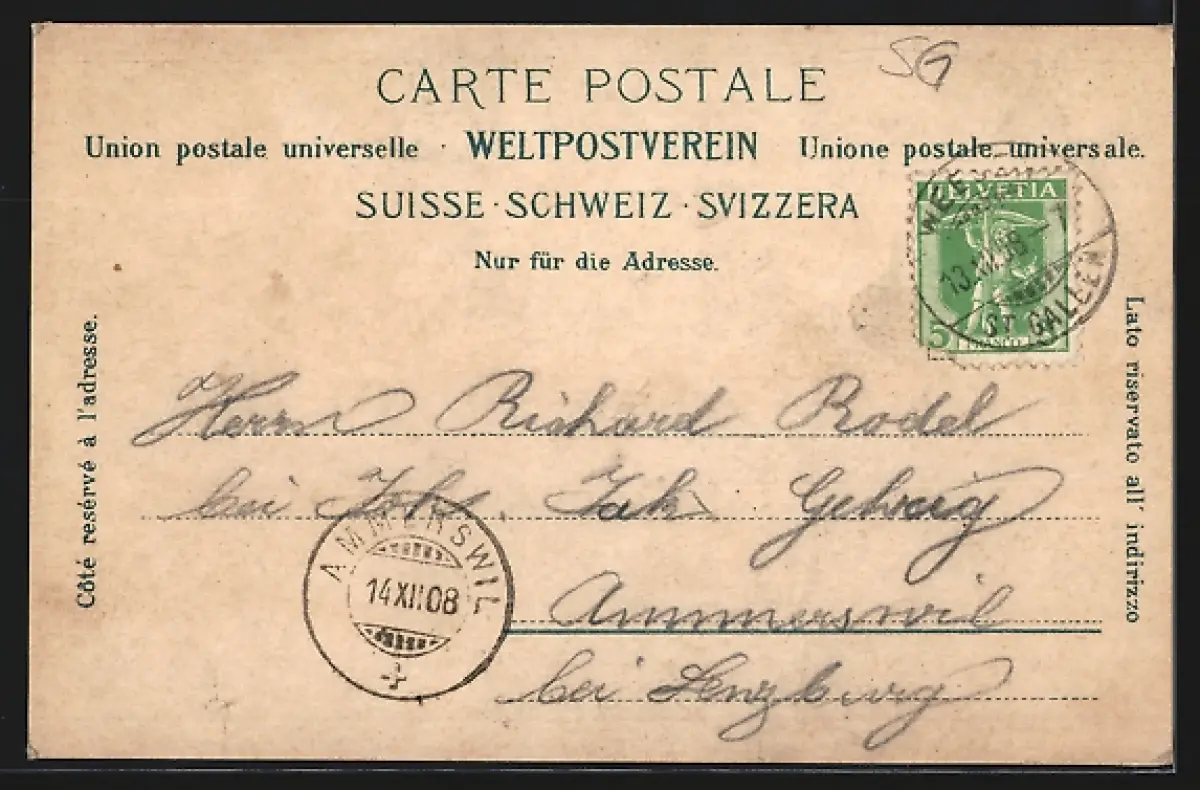 SG
CARTE POSTALE
Union postale universelle · WELTPOSTVEREIN Unione postale universale.
SUISSE · SCHWEIZ · SVIZZERA
Nur für die Adresse.
HELVETIA
13.XII.08
ST. GALLEN
5
FRANCO
Côté resérvé à l'adresse.
Lato riservato all' indirizzo
Herrn Richard Rodel
bei Joh. Jak. Gehrig
Ammerswil
bei Lenzburg
AMMERSWIL
14XII08